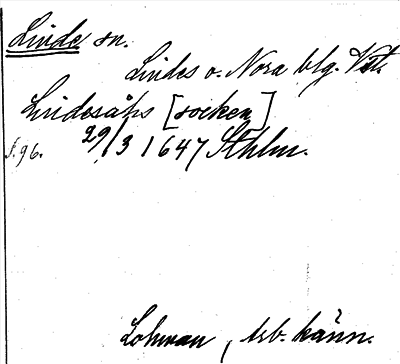 Linde sn.
Lindes o. Nora blg. Vstm.
Lindesåhs [socken]
f. 96. 29/3 1647 Sthlm.
Lohman, Arb. känn.